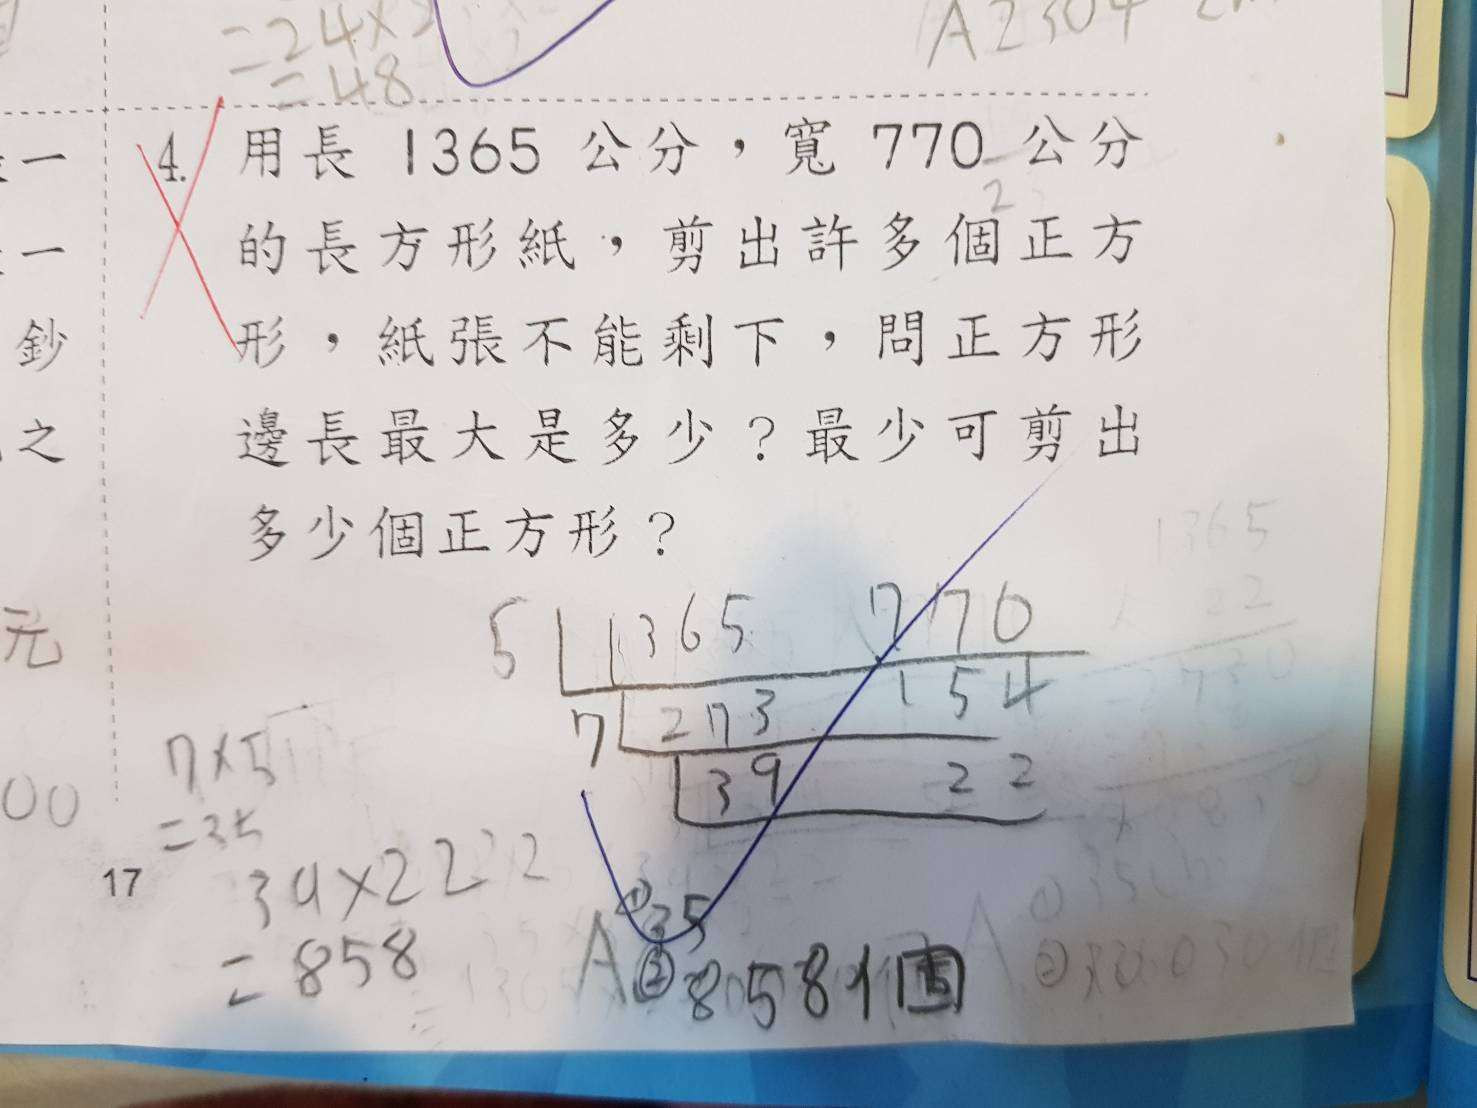 =24×2
=48
A2304
一
4. 用長 1365 公分，寬 770 公分
2
一
的長方形紙，剪出許多個正方
鈔
形，紙張不能剩下，問正方形
之
邊長最大是多少？最少可剪出
多少個正方形？
元
1365
22
5 1365 770
7 273 154
39 22
00
7×5
=35
39×22
=858
17
A①35
②858個
A①35cm